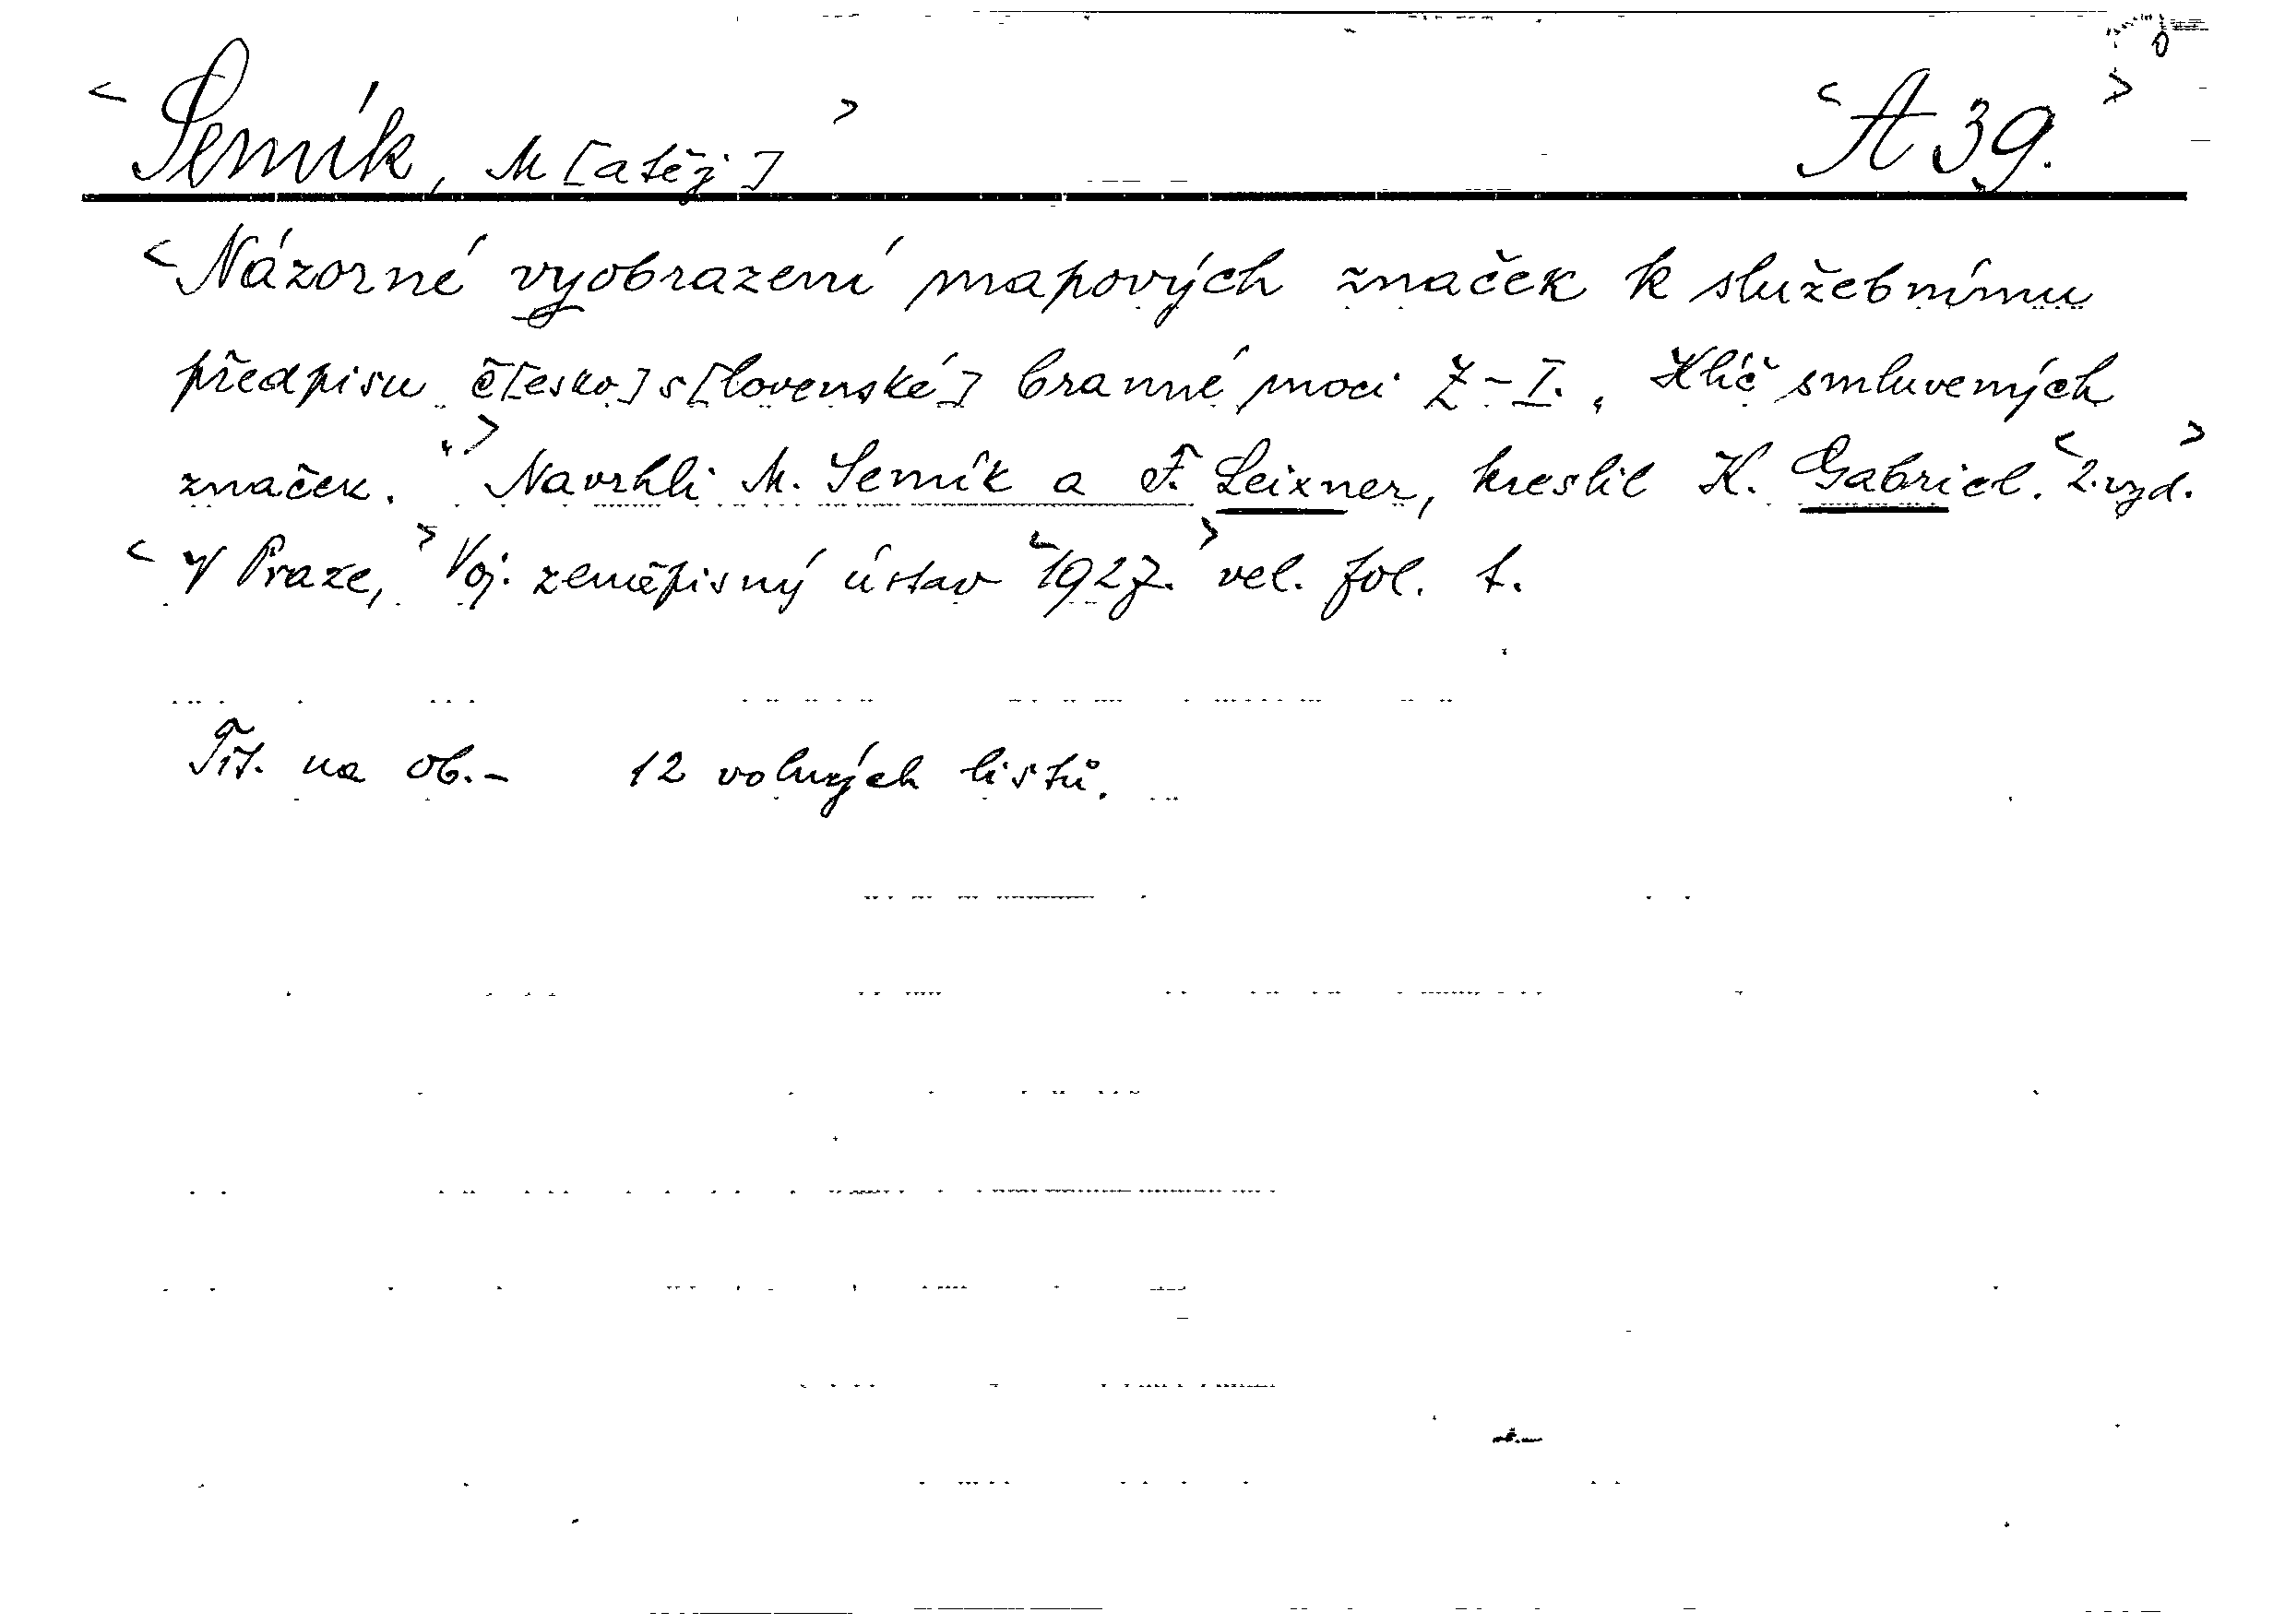 <Semík, M[atěj]> <A 39.>
<Názorné vyobrazení mapových značek k služebnímu
předpisu č[esko]s[lovenské] branné moci Ž-I. „Klíč smluvených
značek.“> Navrhli M. Semík a F. Leixner, kreslil K. Gabriel. <2. vyd.>
<V Praze,> Voj. zeměpisný ústav <1927.> vel. fol. t.
Tit. na ob.- 12 volných listů.